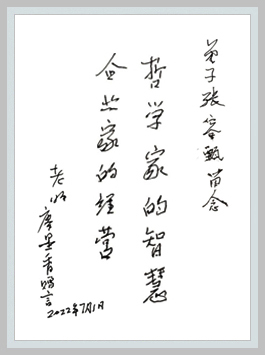 弟子张容甄留念
哲学家的智慧
企业家的经营
老师廖墨香赐言
2022年7月1日